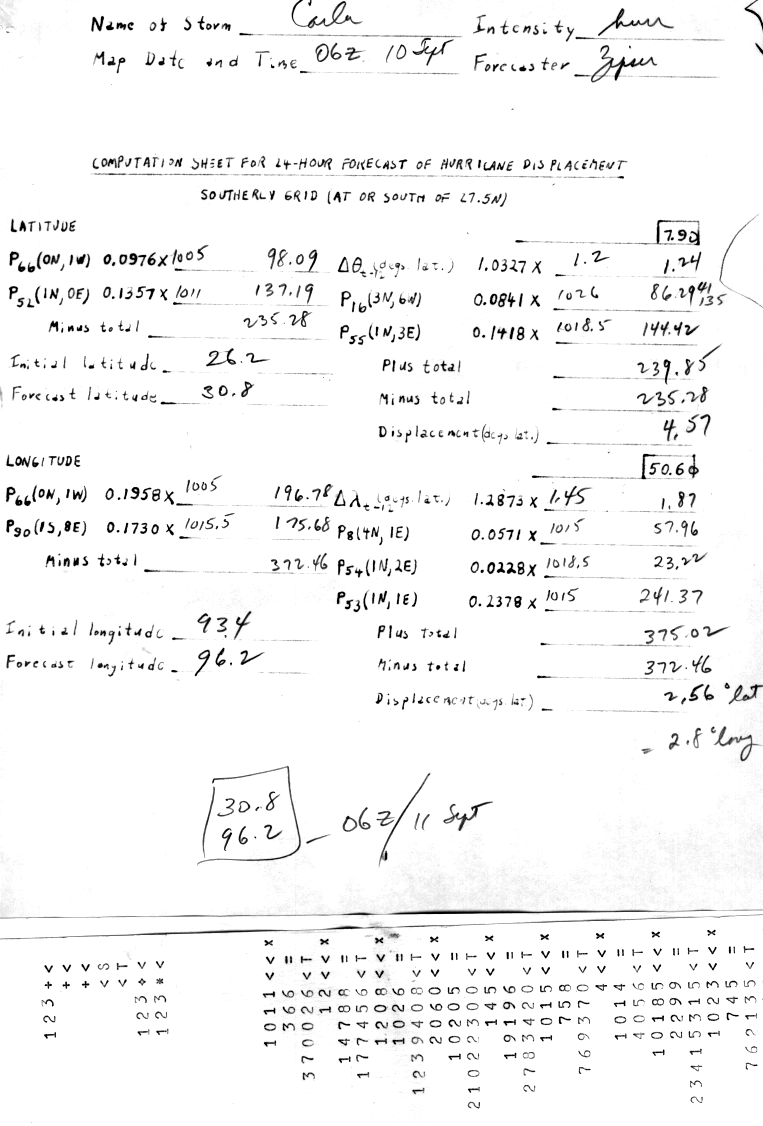 Name of Storm Carla Intensity hurr
Map Date and Time 06Z 10 Sept Forecaster Zipser
COMPUTATION SHEET FOR 24-HOUR FORECAST OF HURRICANE DISPLACEMENT
SOUTHERLY GRID (AT OR SOUTH OF 27.5N)
LATITUDE 7.90
P66(0N, 1W) 0.0976 x 1005 98.09 Δθt-12 (degs. lat.) 1.0327 x 1.2 1.24
P52(1N, 0E) 0.1357 x 1011 137.19 P16(3N, 6W) 0.0841 x 1026 86.29
Minus total 235.28 P55(1N, 3E) 0.1418 x 1018.5 144.42
Initial latitude 26.2 Plus total 239.85
Forecast latitude 30.8 Minus total 235.28
Displacement (degs. lat.) 4.57
LONGITUDE 50.60
P66(0N, 1W) 0.1958 x 1005 196.78 Δλt-12 (degs. lat.) 1.2873 x 1.45 1.87
P90(1S, 8E) 0.1730 x 1015.5 175.68 P8(4N, 1E) 0.0571 x 1015 57.96
Minus total 372.46 P54(1N, 2E) 0.0228 x 1018.5 23.22
P53(1N, 1E) 0.2378 x 1015 241.37
Initial longitude 93.4 Plus total 375.02
Forecast longitude 96.2 Minus total 372.46
Displacement (degs. lat) 2.56 °lat
= 2.8 °long
30.8
96.2 – 06Z/11 Sept
123+<
+<
+<
<S
<T
123*<
123*<
1011<<x
366=
370026<T
12<<x
14788=
177456<T
1208<<x
1026=
1239408<T
2060<<x
10205=
2102230 0<T
145<<x
19196=
2783420<T
1015<<x
758=
769370<T
4<<x
1014=
4056<T
10185<<x
2299=
23415315<T
1023<<x
745=
762135<T